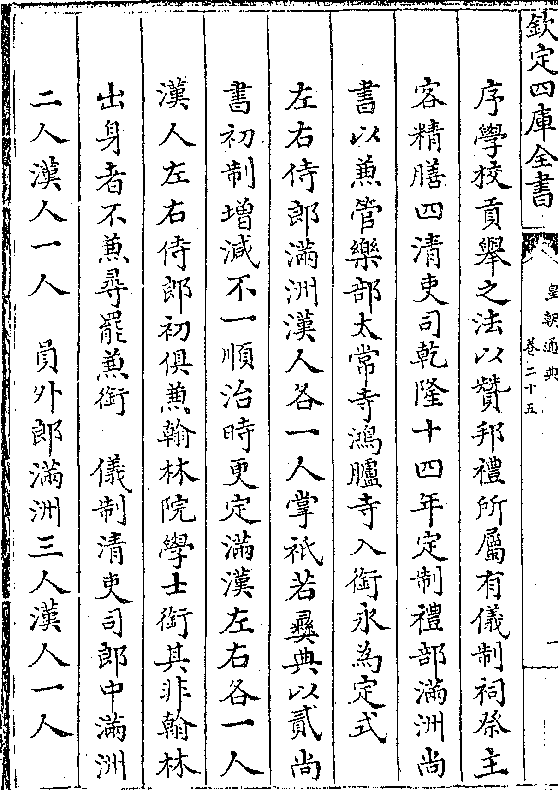 欽定四庫全書
皇朝通典
卷二十五
一
序學校貢舉之法以贊邦禮所屬有儀制祠祭主
客精膳四清吏司乾隆十四年定制禮部滿洲尚
書以兼管樂部太常寺鴻臚寺入銜永為定式
左右侍郎滿洲漢人各一人掌祗若彞典以貳尚
書初制増減不一順治時更定滿漢左右各一人
漢人左右侍郎初俱兼翰林院學士銜其非翰林
出身者不兼尋罷兼銜　儀制清吏司郎中滿洲
二人漢人一人　員外郎滿洲三人漢人一人